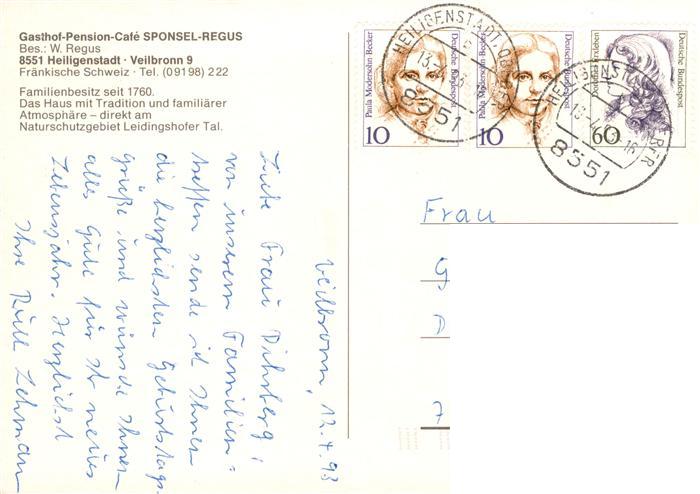 Gasthof-Pension-Café SPONSEL-REGUS
Bes.: W. Regus
8551 Heiligenstadt · Veilbronn 9
Fränkische Schweiz · Tel. (09198) 222
Familienbesitz seit 1760.
Das Haus mit Tradition und familiärer
Atmosphäre – direkt am
Naturschutzgebiet Leidingshofer Tal.
Paula Modersohn-Becker
Deutsche Bundespost
10
Paula Modersohn-Becker
Deutsche Bundespost
10
Dorothea Erxleben
Deutsche Bundespost
60
HEILIGENSTADT, OBERFR
8551
HEILIGENSTADT, OBERFR
8551
Veilbronn, 12.4.93
Liebe Frau
von unserem Familien=
treffen sende ich Ihnen
die herzlichsten Geburtstags=
grüße und wünsche Ihnen
alles Gute für Ihr neues
Lebensjahr. Herzlichst
Ihre Lehmann
Frau
G
D
7